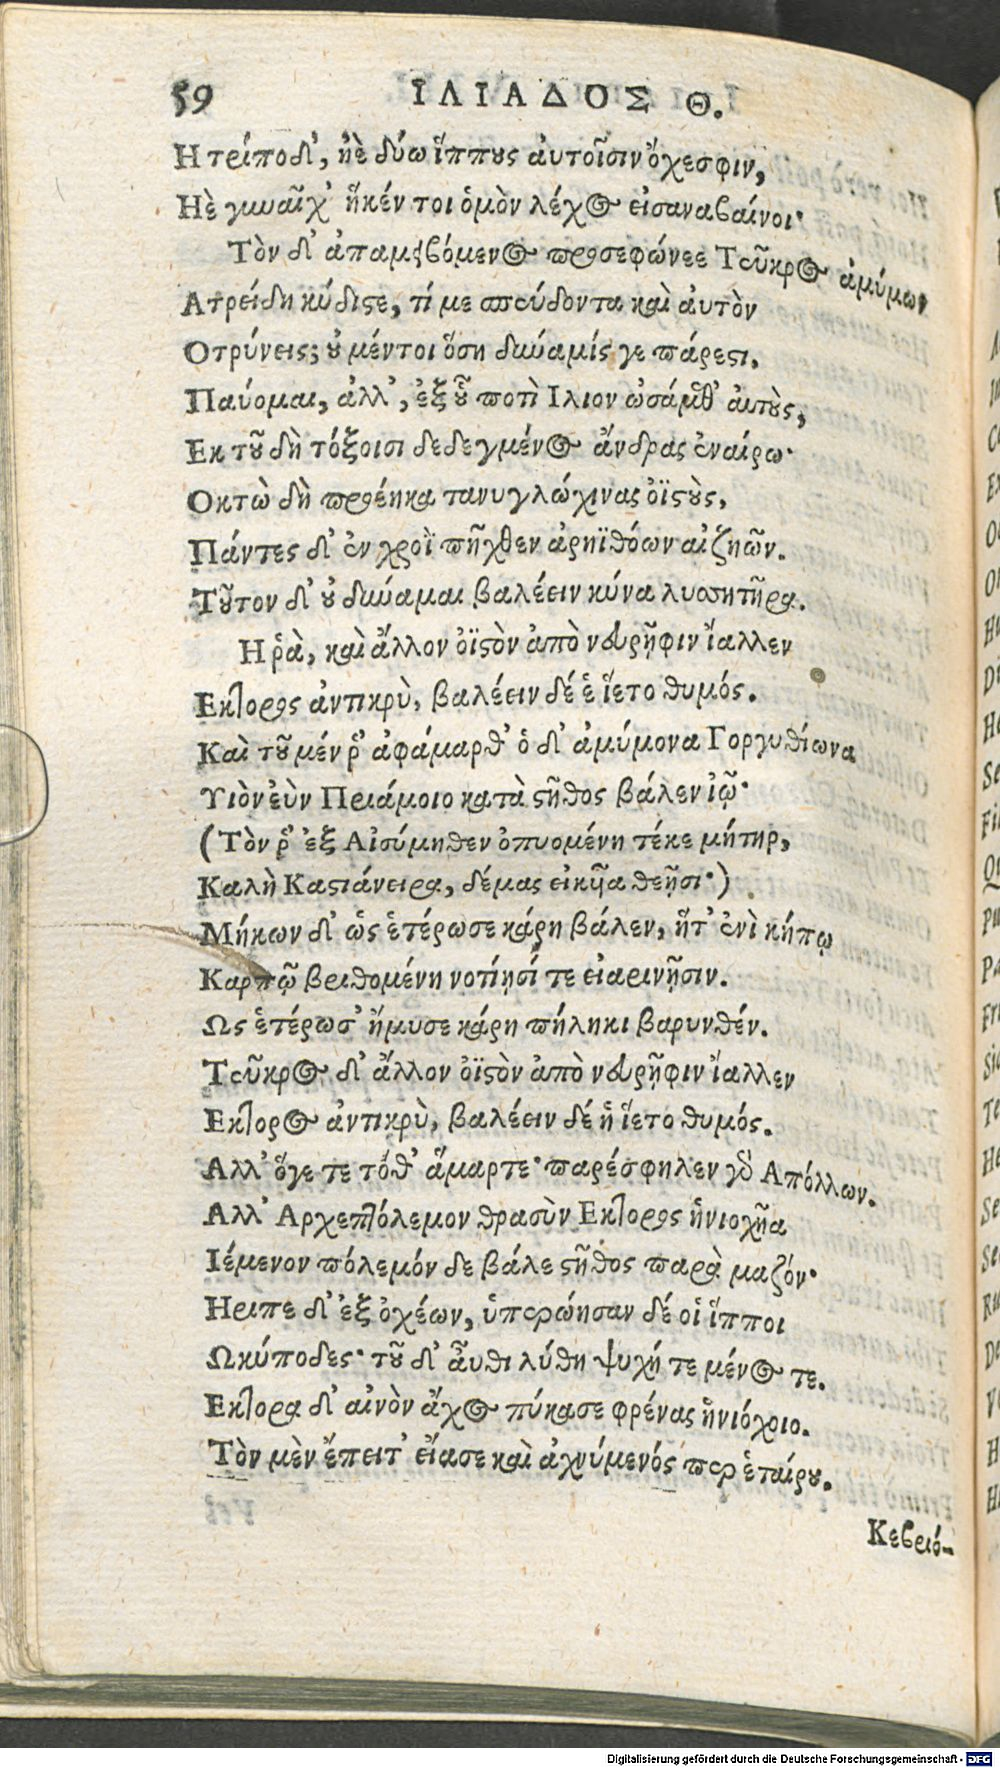 59 ΙΛΙΑΔΟΣ Θ.
Η τρίποδ', ἠὲ δύω ἵππους αὐτοῖσιν ὄχεσφιν,
Ηὲ γυναῖχ' ἥ κέν τοι ὁμὸν λέχος εἰσαναβαίνοι·
Τὸν δ' ἀπαμειβόμενος προσεφώνεε Τεῦκρος ἀμύμων
Ατρείδη κύδιστε, τί με σπεύδοντα καὶ αὐτὸν
Οτρύνεις; οὐ μέντοι ὅση δύναμίς γε πάρεστι,
Παύομαι, ἀλλ', ἐξ οὗ ποτὶ Ιλιον ὠσάμεθ' αὐτοὺς,
Εκ τοῦ δὴ τόξοισι δεδεγμένος ἄνδρας ἐναίρω·
Οκτὼ δὴ προέηκα τανυγλώχινας ὀϊστοὺς,
Πάντες δ' ἐν χροῒ πῆχθεν ἀρηϊθόων αἰζηῶν.
Τοῦτον δ' οὐ δύναμαι βαλέειν κύνα λυσσητῆρα.
Η ῥὰ, καὶ ἄλλον ὀϊστὸν ἀπὸ νευρῆφιν ἴαλλεν
Εκτορος ἀντικρὺ, βαλέειν δέ ἑ ἵετο θυμός.
Καὶ τοῦ μέν ῥ' ἀφάμαρθ' ὁ δ' ἀμύμονα Γοργυθίωνα
Υιὸν ἐὺν Πριάμοιο κατὰ στῆθος βάλεν ἰῷ·
(Τὸν ῥ' ἐξ Αἰσύμηθεν ὀπυομένη τέκε μήτηρ,
Καλὴ Καστιάνειρα, δέμας εἰκυῖα θεῇσι·)
Μήκων δ' ὡς ἑτέρωσε κάρη βάλεν, ἥτ' ἐνὶ κήπῳ
Καρπῷ βριθομένη νοτίῃσί τε εἰαρινῇσιν.
Ως ἑτέρωσ' ἤμυσε κάρη πήληκι βαρυνθέν.
Τεῦκρος δ' ἄλλον ὀϊστὸν ἀπὸ νευρῆφιν ἴαλλεν
Εκτορος ἀντικρὺ, βαλέειν δέ ἡ ἵετο θυμός.
Αλλ' ὅγε τε τόθ' ἅμαρτε· παρέσφηλεν γὰρ Απόλλων.
Αλλ' Αρχεπτόλεμον θρασὺν Εκτορος ἡνιοχῆα
Ιέμενον πόλεμόν δε βάλε στῆθος παρὰ μαζόν·
Ηριπε δ' ἐξ ὀχέων, ὑπερώησαν δέ οἱ ἵπποι
Ωκύποδες· τοῦ δ' αὖθι λύθη ψυχή τε μένος τε.
Εκτορα δ' αἰνὸν ἄχος πύκασε φρένας ἡνιόχοιο.
Τὸν μὲν ἔπειτ' εἴασε καὶ ἀχνύμενός περ ἑταίρου.
Κεβριό-
Digitalisierung gefördert durch die Deutsche Forschungsgemeinschaft - DFG